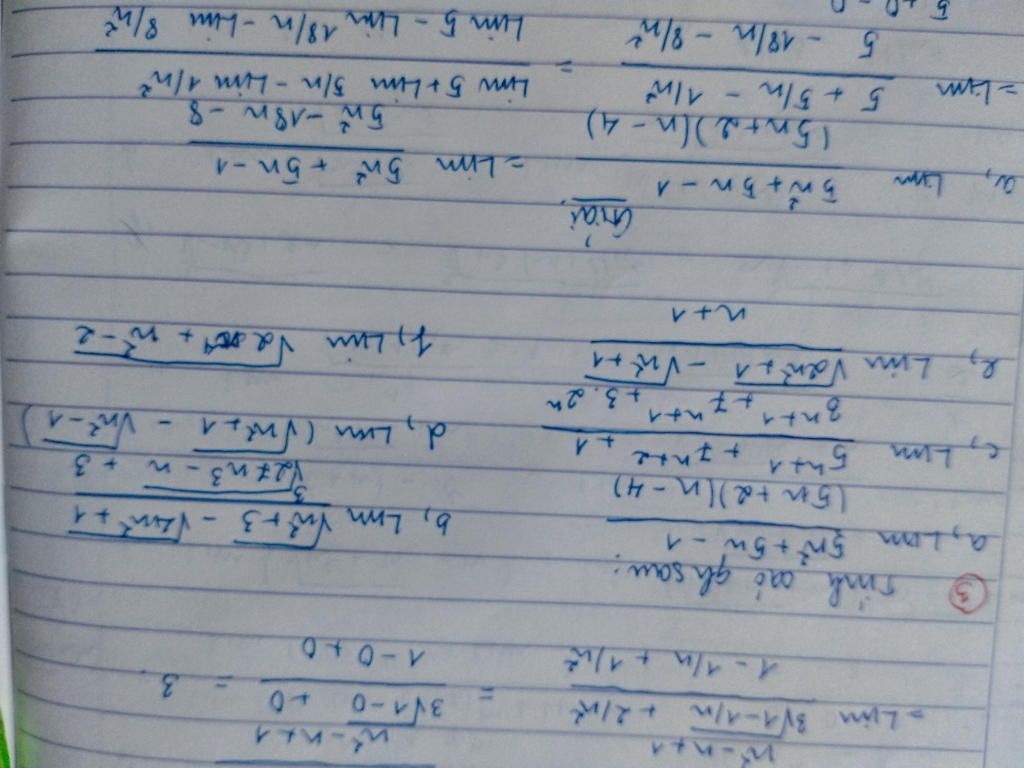 n²-n+1
n²-n+1
=Lim 3√1-1/n + 2/n² / 1-1/n+1/n² = 3√1-0+0 / 1-0+0 = 3.
③ Tính các gh sau:
a, Lim 5n²+5n-1 / (5n+2)(n-4) b, Lim √n²+3 - √4n²+1 / ³√27n³-n + 3
c, Lim 5ⁿ⁺¹ + 7ⁿ⁺² + 1 / 3ⁿ⁺¹ + 7ⁿ⁺¹ + 3.2ⁿ d, Lim (√n²+1 - √n²-1)
e, Lim √2n²+1 - √n²+1 / n+1 f, Lim √2n⁴ + n²-2
Giải.
a, Lim 5n²+5n-1 / (5n+2)(n-4) = Lim 5n²+5n-1 / 5n²-18n-8
=Lim 5+5/n-1/n² / 5-18/n-8/n² = Lim 5+Lim 5/n-Lim 1/n² / Lim 5-Lim 18/n-Lim 8/n²
5+0-0